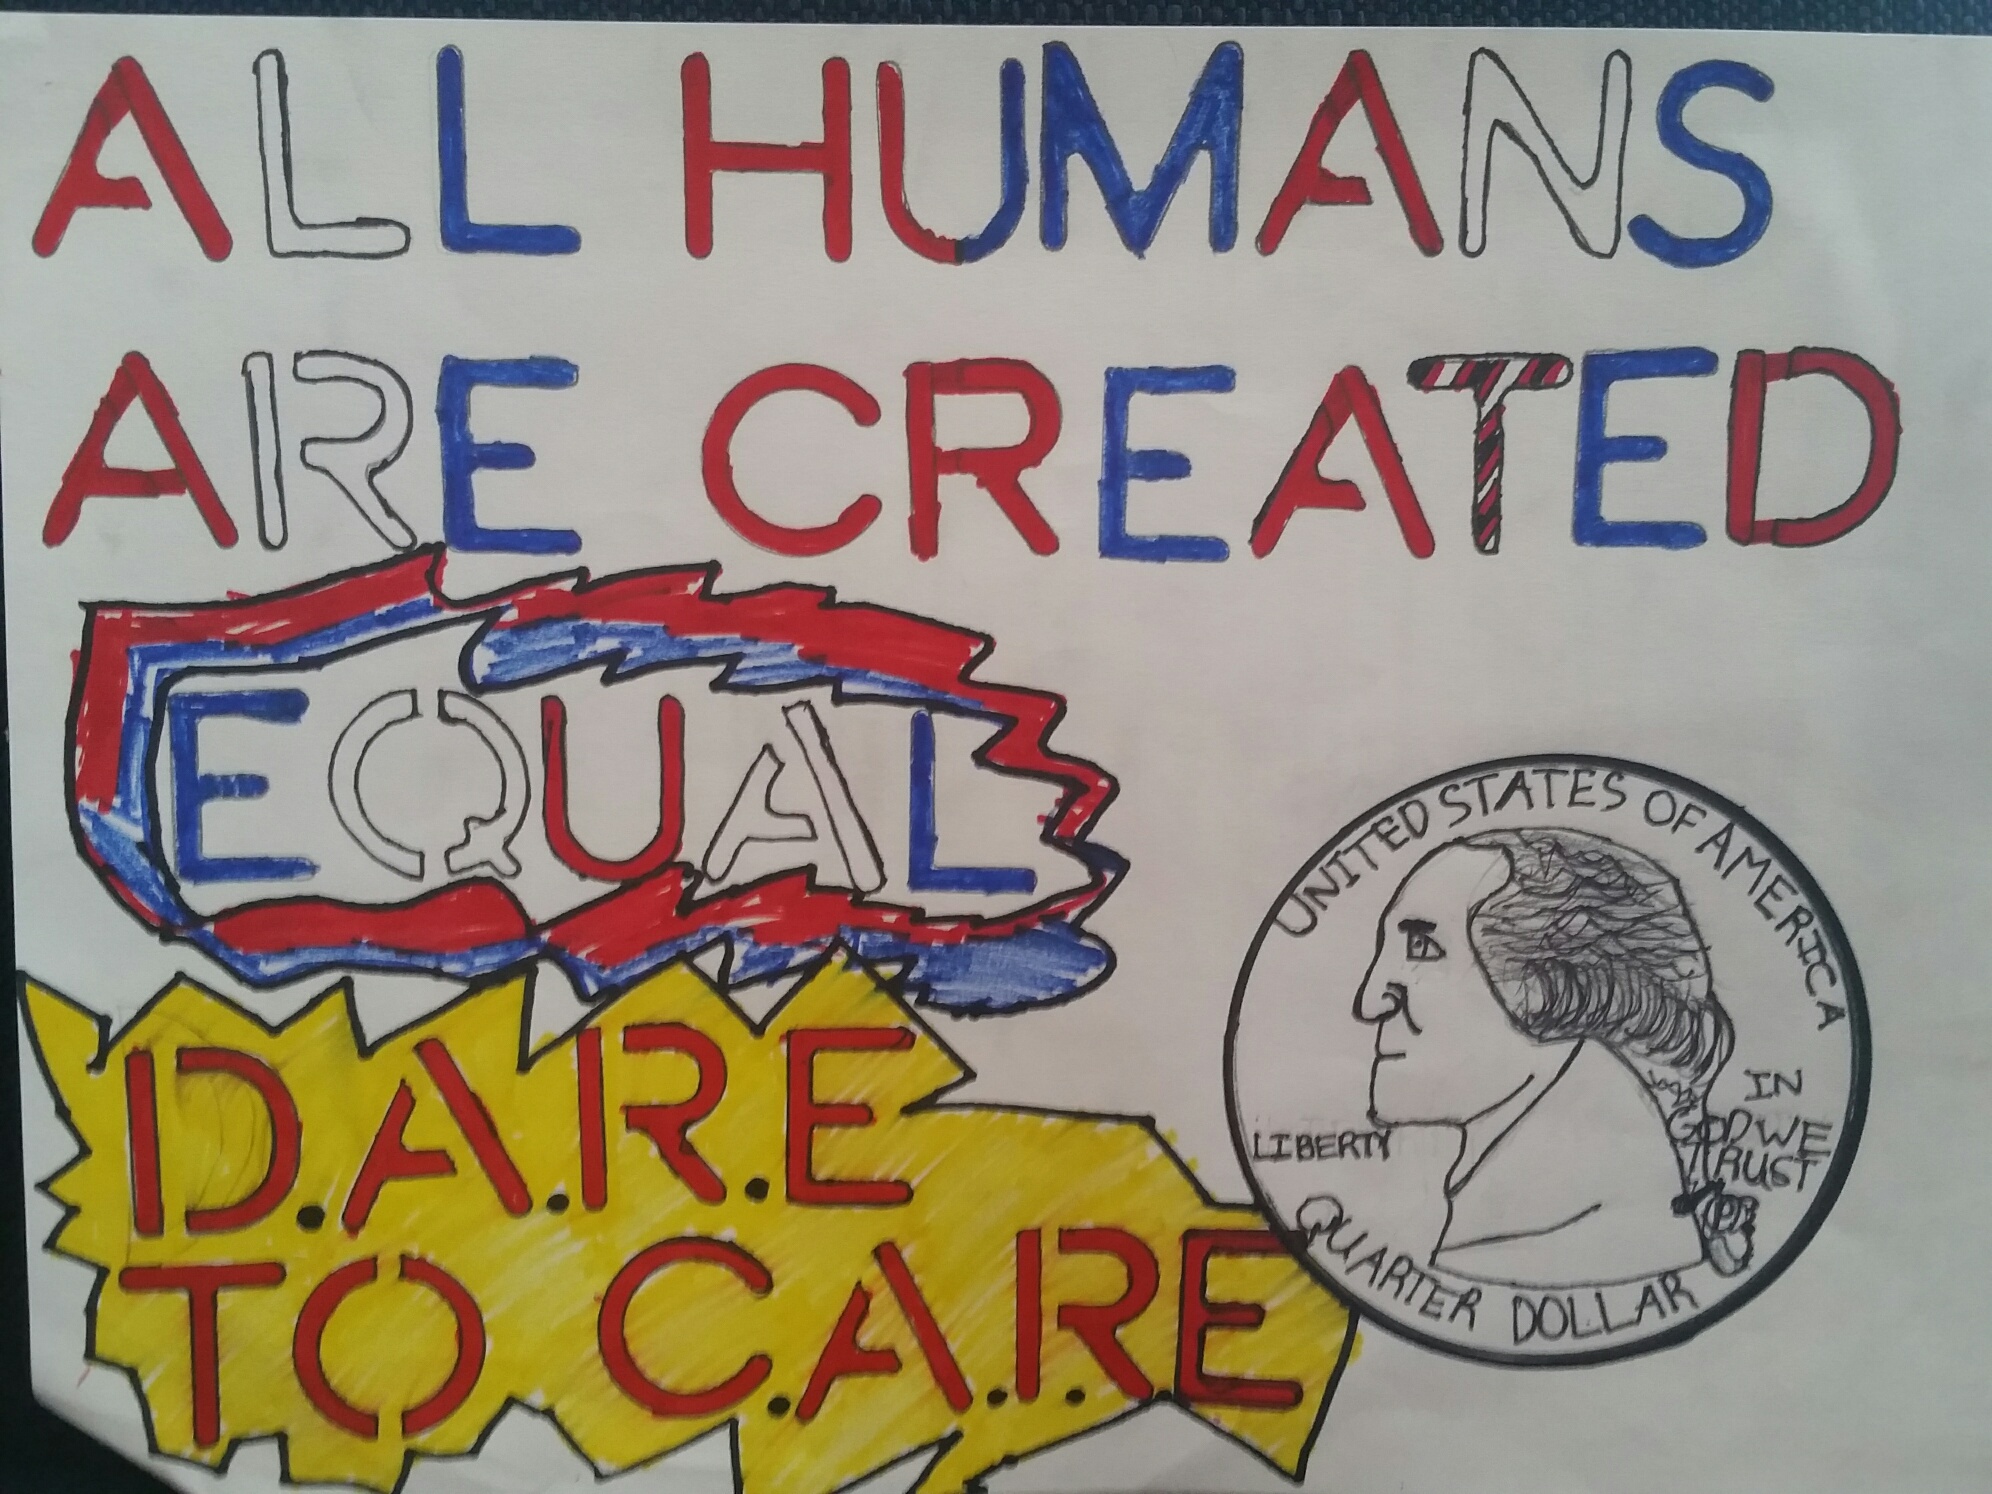 ALL HUMANS
ARE CREATED
EQUAL
D.A.R.E
TO C.A.R.E
UNITED STATES OF AMERICA
LIBERTY
IN
GOD WE
TRUST
QUARTER DOLLAR